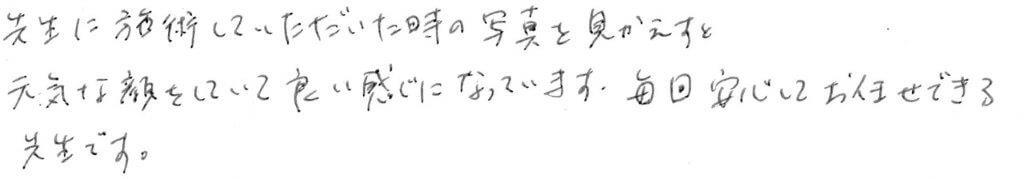 先生に施術していただいた時の写真を見かえすと
元気な顔をしていて良い感じになっています。毎回安心してお任せできる
先生です。